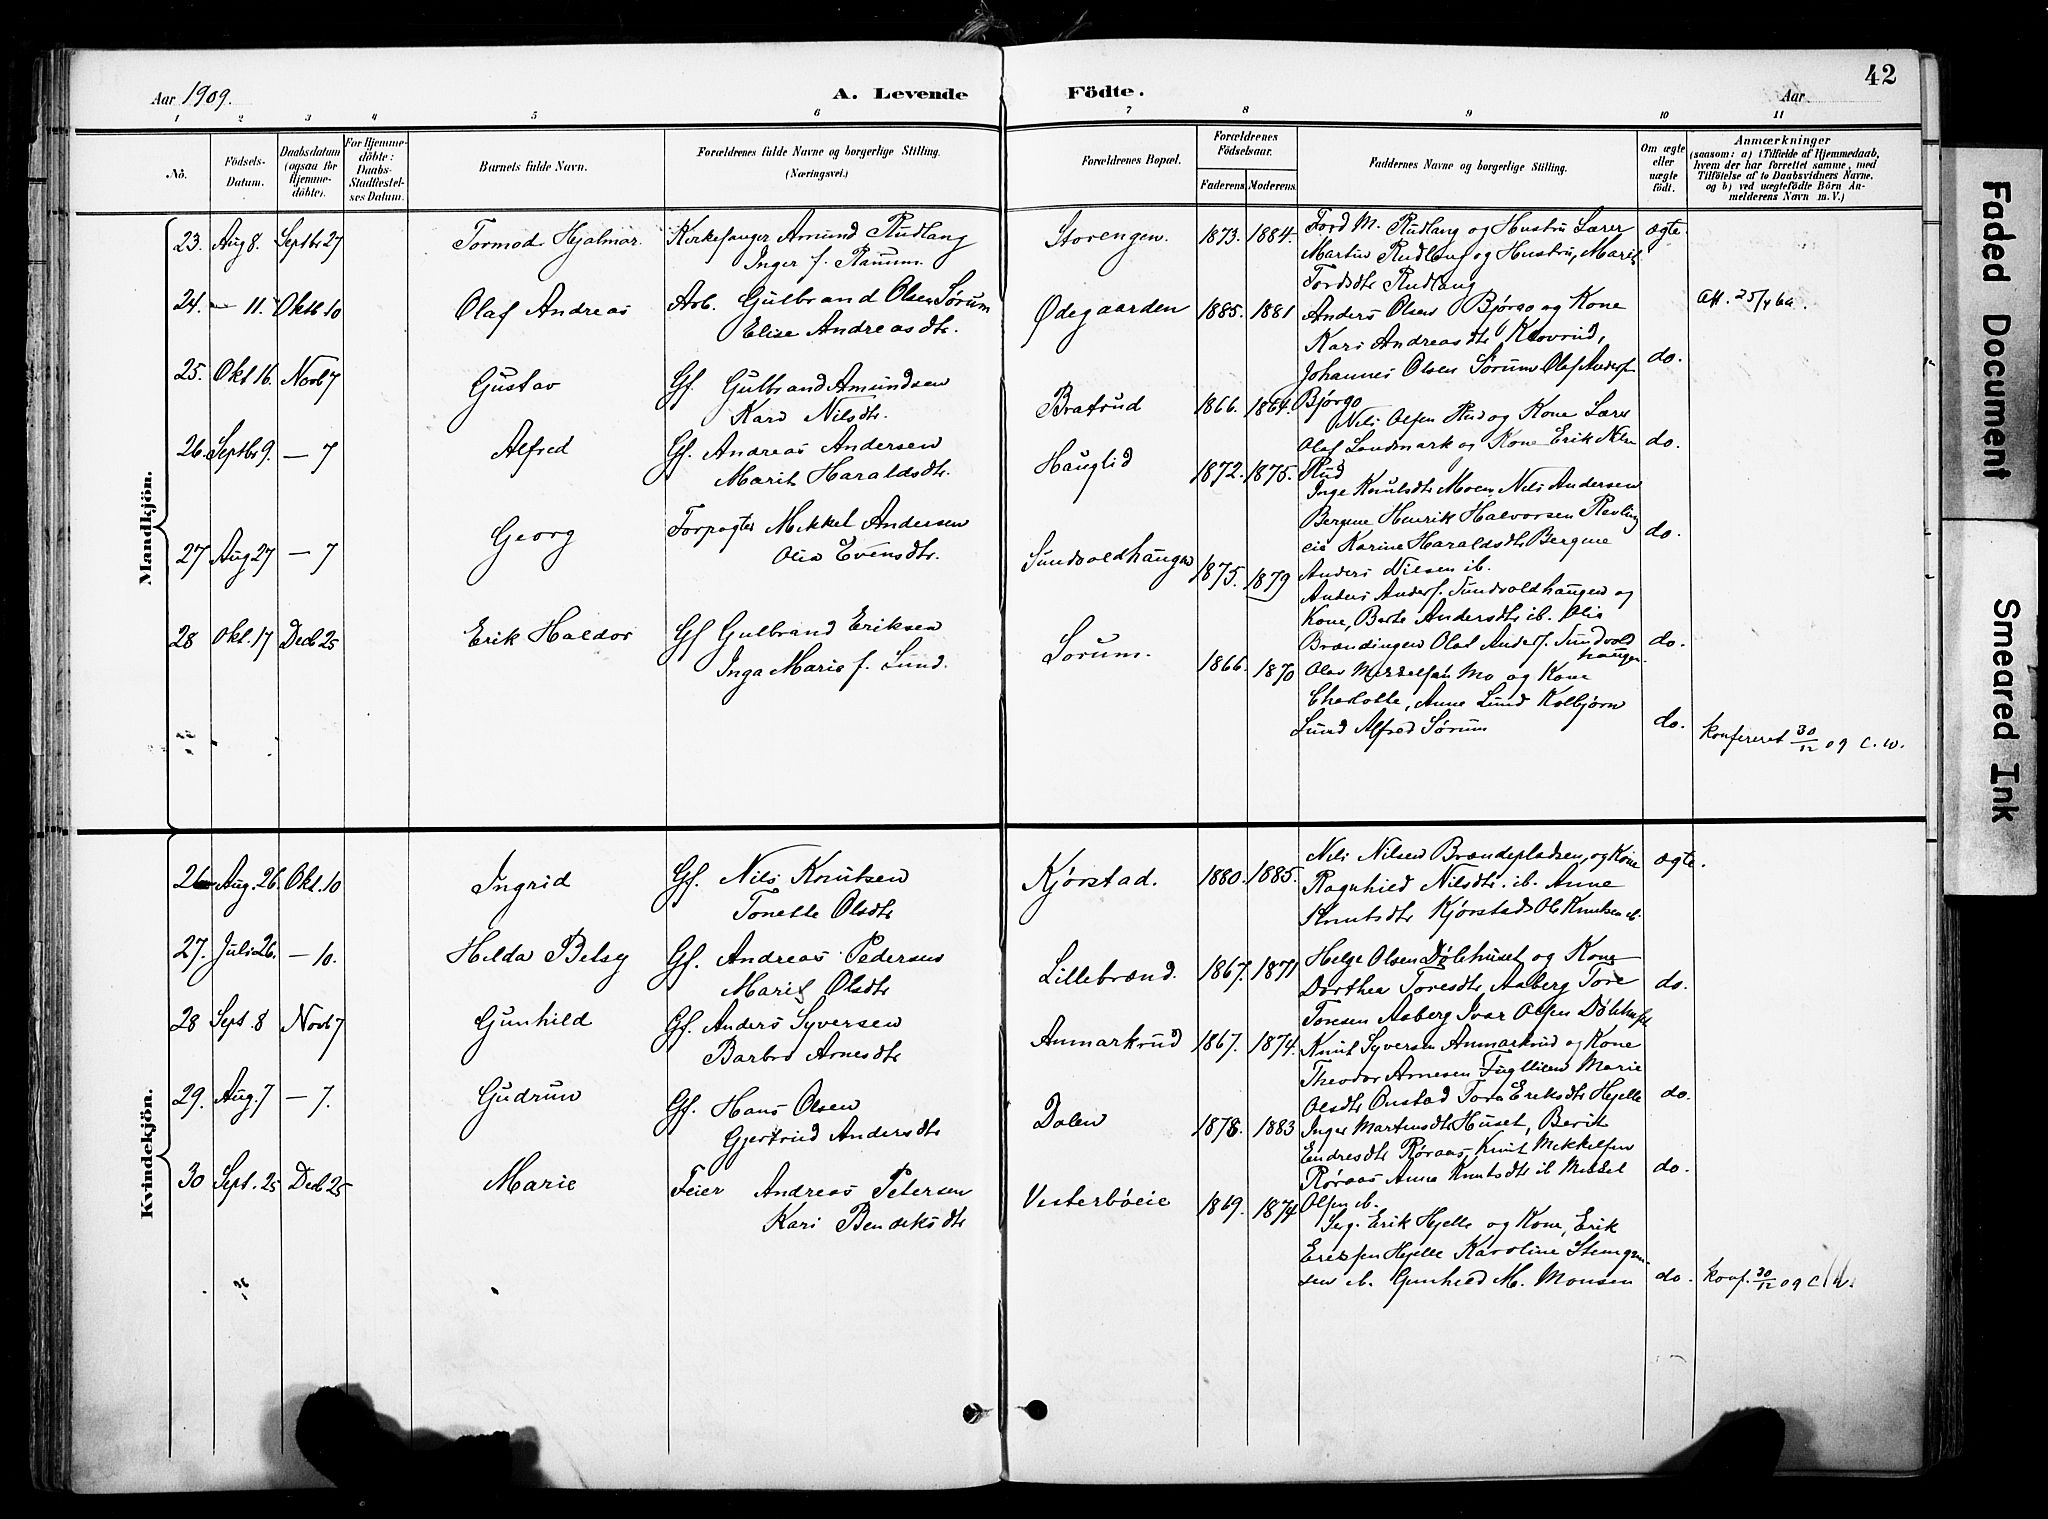 Aar 1909.
A. Levende
Födte.
Aar
42
1 2 3 4 5 6 7 8 9 10 11
Nô.
Födsels-
Datum.
Daabsdatum
(ogsaa for
Hjemme-
döbte).
For Hjemme-
döbte:
Daabs-
Stadfæstel-
ses Datum.
Barnets fulde Navn.
Forældrenes fulde Navne og borgerlige Stilling.
(Næringsvei.)
Forældrenes Bopæl.
Forældrenes
Födselsaar.
Faderens.
Moderens.
Faddernes Navne og borgerlige Stilling.
Om ægte
eller
uægte
födt.
Anmærkninger
(saasom: a) i Tilfælde af Hjemmedaab,
hvem der har forrettet samme, med
Tilföielse af to Daabsvidners Navne,
og b) ved uægtefödte Börn An-
melderens Navn m.V.)
Mandkjön.
23. Aug 8. Septbr 27 Tormod Hjalmar. Kirkesanger Amund Rudlang
Inger f. Ranum.
Storengen. 1873. 1884.
Tord M. Rudlang og Hustru Lærer
Martin Rudlang og Hustru, Marit
Tordsdtr Rudlang
ægte.
24. — 11. Oktb 10 Olaf Andreas Arb. Gulbrand Olsen Sørum
Elise Andreasdtr.
Ødegaarden 1885. 1881
Anders Olsen Bjørgo og Kone
Kari Andreasdtr Klovrud,
Johannes Olsen Sørum Olaf Andersf
Bjørgo
do.
Att. 25/4 60.
25. Okt 16. Novb 7 Gustav Gf. Gulbrand Amundsen
Kari Nilsdtr.
Bratrud 1866. 1864.
Nils Olsen Rud og Kone Lærer
Olaf Landmark og Kone Erik Nilsen
Rud
do.
26. Septbr 9. — 7 Alfred Gf. Andreas Andersen
Marit Haraldsdtr.
Hauglid 1872. 1875.
Inge Knutsdtr Moen, Nils Andersen
Bergene Henrik Halvorsen Revling
eie Karine Haraldsdtr Bergene
Anders Nilsen ib.
do.
27 Aug 27 — 7 Georg Forpagter Mikkel Andersen
Olia Evensdtr.
Sundvoldhaugen 1875. 1879
Anders Andersf. Sundvoldhaugen og
Kone, Berte Andersdtr ib. Olia
Brændingen Olaf Andersf. Sundvold
haugen.
do.
28 Okt. 17 Decb 25 Erik Haldor Gf Gulbrand Eriksen
Inga Marie f. Lund.
Sørum. 1866. 1870
Olav Mo og Kone
Charlotte, Anne Lund Kolbjørn
Lund Alfred Sørum
do.
Konfereret 30/12 09 C. W.
Kvindekjön.
26 Aug. 26. Okt. 10 Ingrid Gf. Nils Knutsen
Tonette Olsdtr
Kjørstad. 1880. 1885.
Nils Nilsen Brændepladsen, og Kone
Ragnhild Nilsdtr. ib. Anne
Knutsdtr Kjørstad Ole Knutsen ib.
ægte.
27. Juli 26. — 10. Hilda Betsy Gf. Andreas Pedersen
Marit Olsdtr
Lillebrænd. 1867. 1871
Helge Olsen Dølehuset og Kone
Dorthea Toresdtr, Aaberg Tore
Toresen Aaberg Ivar Olsen Dølehuset
do.
28 Sept. 8 Novb 7 Gunhild Gf. Anders Syversen
Barbro Arnesdtr
Anmarkrud 1867. 1874.
Knut Syversen Anmarkrud og Kone
Theodor Arnesen Fugllien Marie
Olsdtr Onstad Tora Eriksdtr Hjelle
do.
29. Aug. 7 — 7. Gudrun Gf. Hans Olsen
Gjertrud Andersdtr
Dalen 1878. 1883
Inger Martensdtr Huset, Berit
Endresdtr Røraas, Knut Mikkelsen
Røraas Anne Knutsdtr ib Mikkel
Olsen ib.
do.
30 Sept. 25 Decb 25 Marie Feier Andreas Petersen
Kari Bendiksdtr
Vesterbøeie 1869. 1874
Erik Hjelle og Kone, Erik
Eriksen Hjelle Karoline
ib. Gunhild M. Monsen
do.
Konf. 30/12 09 C. W.
Faded Document
Smeared Ink